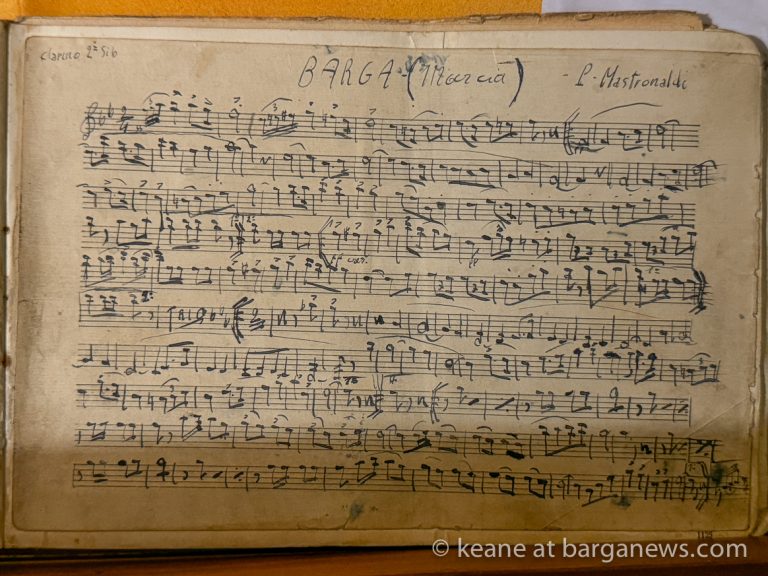 Clarino 2º Sib
BARGA - (Marcia) - P. Mastronaldi
TRIO
© keane at barganews.com